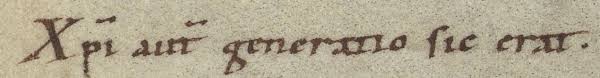 Xp̄i aut̄ generatio sic erat.